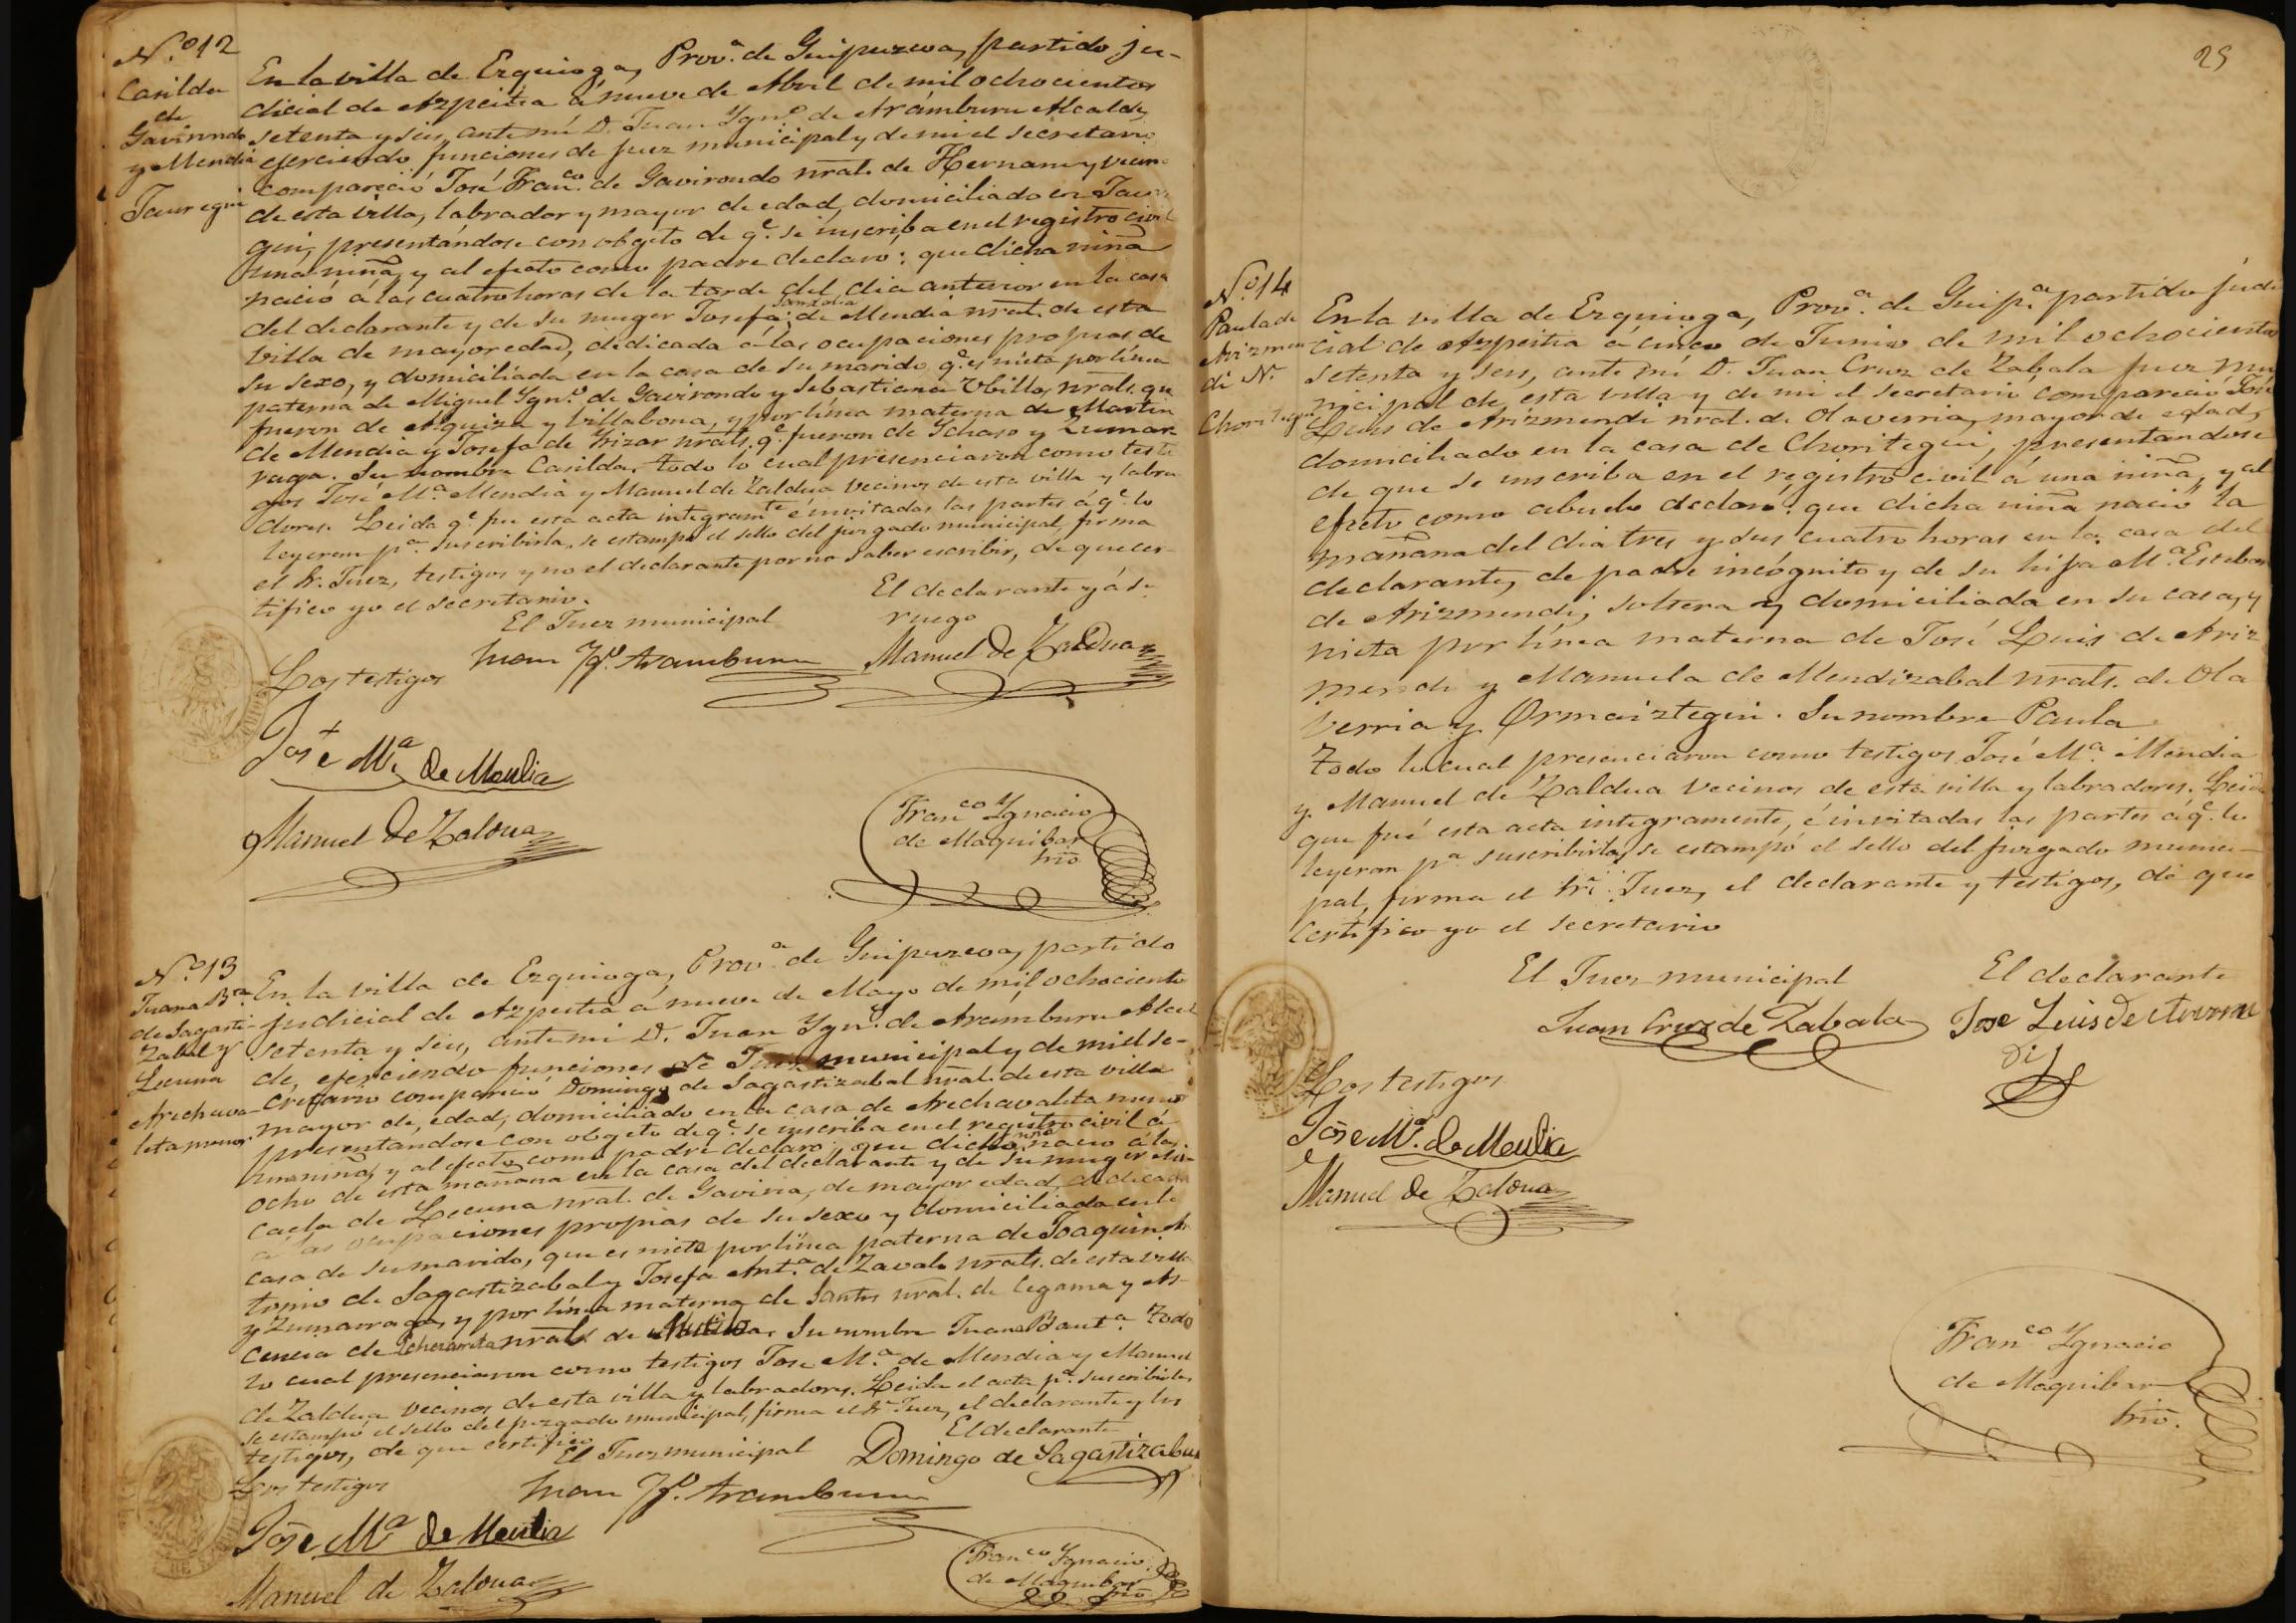 N.º 12
Casilda
de
Gavirondo
y Mendia
Jauregui
En la villa de Ezquioga, Prov.ª de Guipuzcoa, partido ju-
dicial de Azpeitia á nueve de Abril de mil ochocientos
setenta y seis, ante mi D. Juan Ygn.º de Arámburu Alcalde
ejerciendo funciones de juez municipal y de mi el secretario
compareció José Fran.co de Gavirondo nral. de Hernani y vecino
de esta villa, labrador y mayor de edad, domiciliado en Jaure
gui, presentándose con objeto de q.e se inscriba en el registro civil
una niña, y al efecto como padre declaró: que dicha niña
nació á las cuatro horas de la tarde del dia anterior en la casa
del declarante y de su muger Josefa de Mendia nral. de esta
villa de mayor edad, dedicada á las ocupaciones propias de
su sexo, y domiciliada en la casa de su marido q.e es nieta por línea
paterna de Miguel Ygn.º de Gavirondo y Sebastiana Ubillos nrals. qu
fueron de Alquiza y Villabona, y por línea materna de Martin
de Mendia y Josefa de Yrizar nrals. q.e fueron de Ychaso y Zumar
raga. Su nombre Casilda, todo lo cual presenciaron como testi
gos José M.ª Mendia y Manuel de Zaldua vecinos de esta villa y labra
dores. Leida q.e fue esta acta integram.te é invitadas las partes á q.e lo
leyeren p.ª suscribirla, se estampó el sello del juzgado municipal, firma
el Sr. Juez, testigos y no el declarante por no saber escribir, de que cer-
tifico yo el secretario.
El Juez municipal
El declarante y á su
ruego
Juan Yº. Aramburu
Manuel de Zaldua
Los testigos
José M.ª de Mendia
Manuel de Zaldua
Fran.co Ygnacio
de Maquibar
Srio
N.º 13
Juana B.ta
de Sagasti-
zabal y
Lecuna
Arechava-
leta menor
En la villa de Ezquioga, Prov.ª de Guipuzcoa, partido
judicial de Azpeitia á nueve de Mayo de mil ochociento
setenta y seis, ante mi D. Juan Ygn.º de Aramburu Alcal
de, ejerciendo funciones de Juez municipal y de mi el se-
cretario compareció Domingo de Sagastizabal nral. de esta villa
mayor de edad, domiciliado en la casa de Arechavaleta menor
presentandose con objeto de q.e se inscriba en el registro civil á
una niña, y al efecto como padre declaró: que dicha niña nació á las
ocho de esta mañana en la casa del declarante y de su muger Mi-
caela de Lecuna nral. de Gaviria, de mayor edad, dedicada
a las ocupaciones propias de su sexo y domiciliada en la
casa de su marido, que es nieta por línea paterna de Joaquin An
tonio de Sagastizabal y Josefa Ant.ª de Zavala nrals. de esta villa
y Zumarraga, y por línea materna de Santos nral. de Cegama y As-
cencia de Echezarreta nral. de Mutiloa. Su nombre Juana Baut.ª Todo
lo cual presenciaron como testigos José M.ª de Mendia y Manuel
de Zaldua vecinos de esta villa y labradores. Leida el acta p.ª suscribirla,
se estampó el sello del juzgado municipal, firma el Sr. Juez, el declarante y los
testigos, de que certifico
El Juez municipal
El declarante
Domingo de Sagastizabal
Los testigos
Juan Yº. Aramburu
José M.ª de Mendia
Manuel de Zaldua
Fran.co Ygnacio
de Maquibar
Srio
25
N.º 14
Paula de
Arizmen
di N.
Choritegui
En la villa de Ezquioga, Prov.ª de Guip.ª partido judi
cial de Azpeitia á cinco de Junio de mil ochocientos
setenta y seis, ante mí D. Juan Cruz de Zabala juez mu
nicipal de esta villa y de mi el secretario compareció José
Luis de Arizmendi nral. de Olaverria, mayor de edad,
domiciliado en la casa de Choritegui, presentandose
de que se inscriba en el registro civil á una niña, y al
efecto como abuelo declaró: que dicha niña nació la
mañana del dia tres y sus cuatro horas en la casa del
declarante, de padre incógnito y de su hija M.ª Esteban
de Arizmendi, soltera y domiciliada en su casa, y
nieta por línea materna de José Luis de Ariz
mendi y Manuela de Mendizabal nrals. de Ola
verria y Ormaiztegui. Su nombre Paula
Todo lo cual presenciaron como testigos José M.ª Mendia
y Manuel de Zaldua vecinos de esta villa y labradores. Leida
que fué esta acta integramente, é invitadas las partes á q.e lo
leyeran p.ª suscribirla, se estampó el sello del juzgado munici-
pal, firma el Sr. Juez, el declarante y testigos, de que
certifico yo el secretario
El Juez municipal
El declarante
Juan Cruz de Zabala
Jose Luis de Arizmen
di
Los testigos
José M.ª de Mendia
Manuel de Zaldua
Fran.co Ygnacio
de Maquibar
Srio.